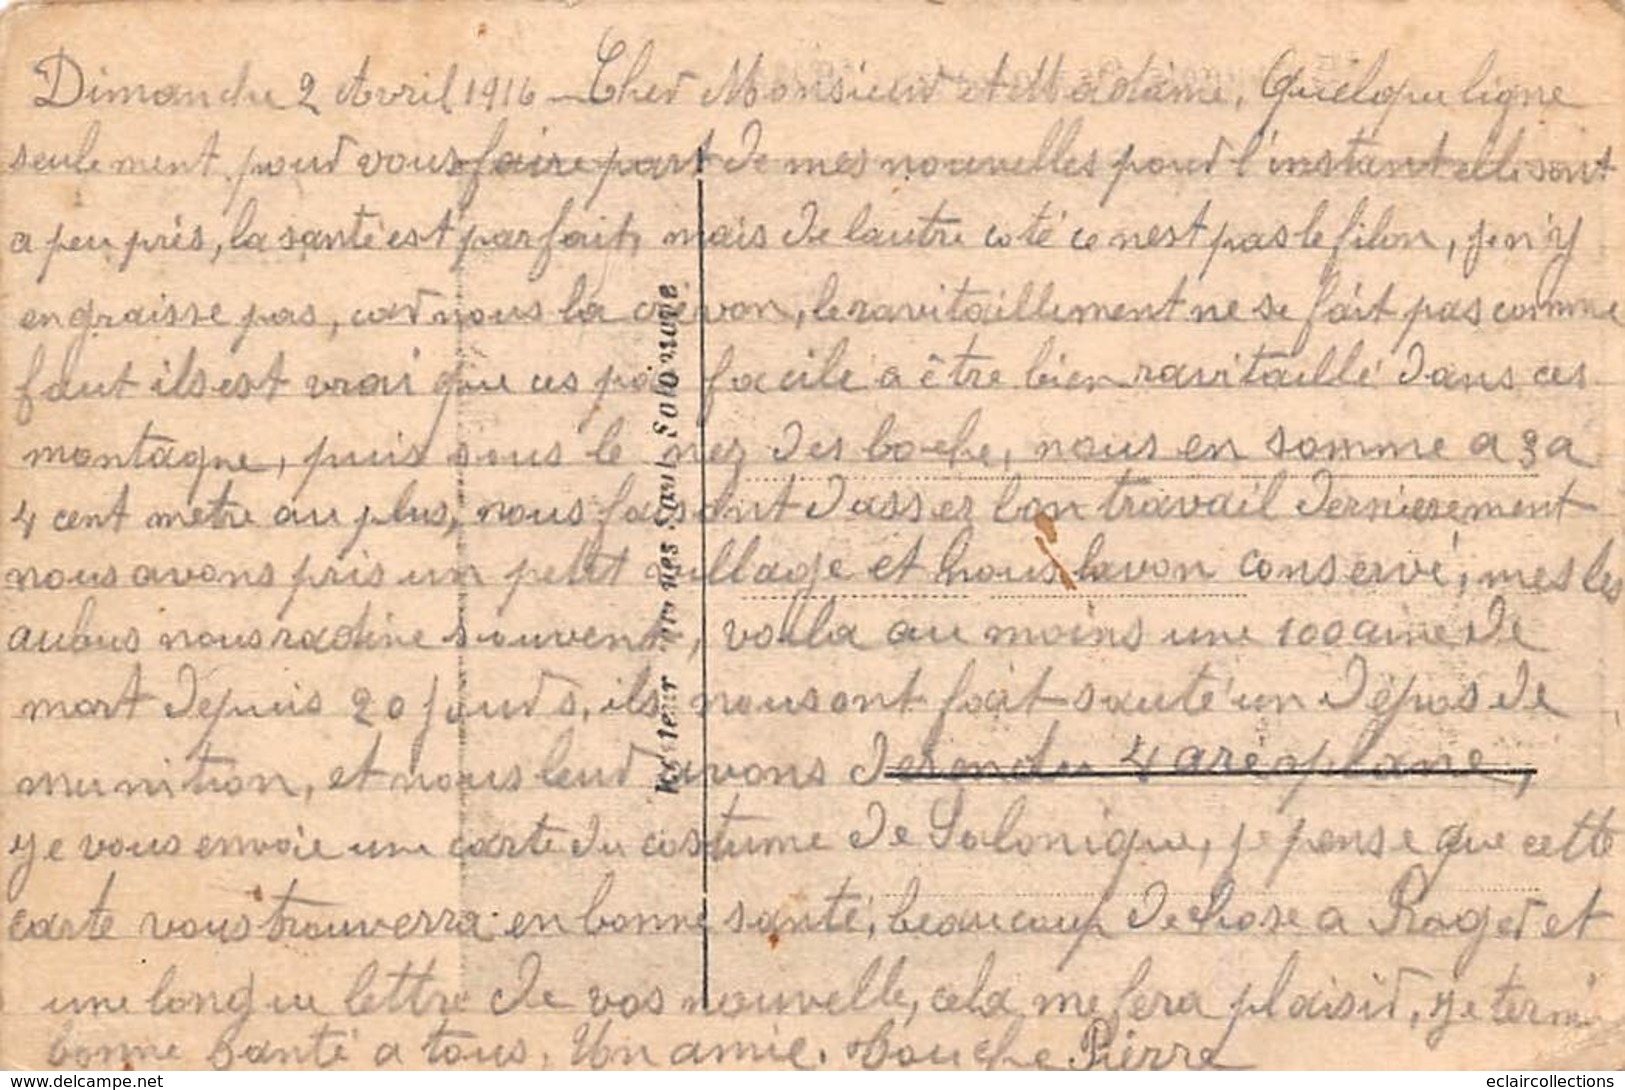 Dimanche 2 Avril 1916 - Cher Monsieur et Madame, Quelque ligne
seulement, pour vous faire part de mes nouvelles pour l'instant elle sont
a peu près, la santé est parfait, mais de lautre coté ce nest pas le filon, je n'y
engraisse pas, car nous la crevon, le ravitaillement ne se fait pas comme
faut ils est vrai que ces pas facile a être bien ravitaillé dans ces
montagne, puis sous le nez des boche, nous en somme a 3 a
4 cent metre au plus, nous faisont dasser bon travail dernierement
nous avons pris un petit village et nous lavon conservé, mes les
aubus nous radine souvent, voila au moins une 100aine de
mort depuis 20 jours, ils nous ont fait sauté un dépos de
munition, et nous leur avons desendu 4 aréoplane,
je vous envoie une carte du costume de Salonique, je pense que cette
carte vous trouverra en bonne santé, beaucoup de chose a Roger et
une longue lettre de vos nouvelle, cela me fera plaisir, je termine
bonne santé a tous. Un amie. Bouche Pierre
Editeur Hannes Saul Salonique
eclaircollections